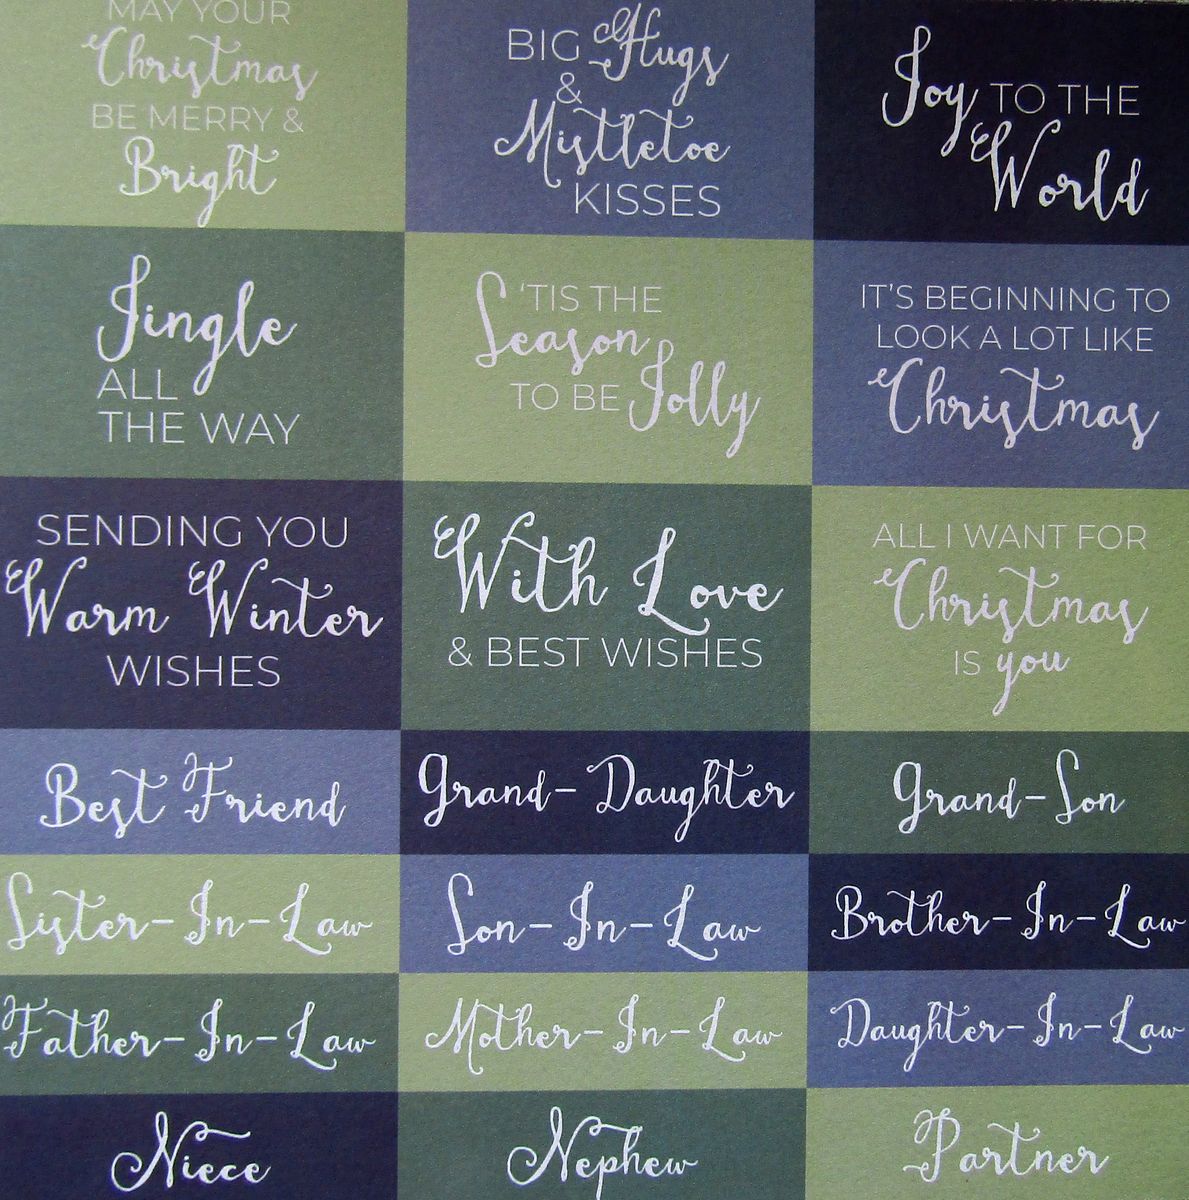 MAY YOUR
Christmas
BE MERRY &
Bright
BIG Hugs
&
Mistletoe
KISSES
Joy TO THE
World
Jingle
ALL
THE WAY
'TIS THE
Season
TO BE Jolly
IT'S BEGINNING TO
LOOK A LOT LIKE
Christmas
SENDING YOU
Warm Winter
WISHES
With Love
& BEST WISHES
ALL I WANT FOR
Christmas
IS you
Best Friend
Grand-Daughter
Grand-Son
Sister-In-Law
Son-In-Law
Brother-In-Law
Father-In-Law
Mother-In-Law
Daughter-In-Law
Niece
Nephew
Partner